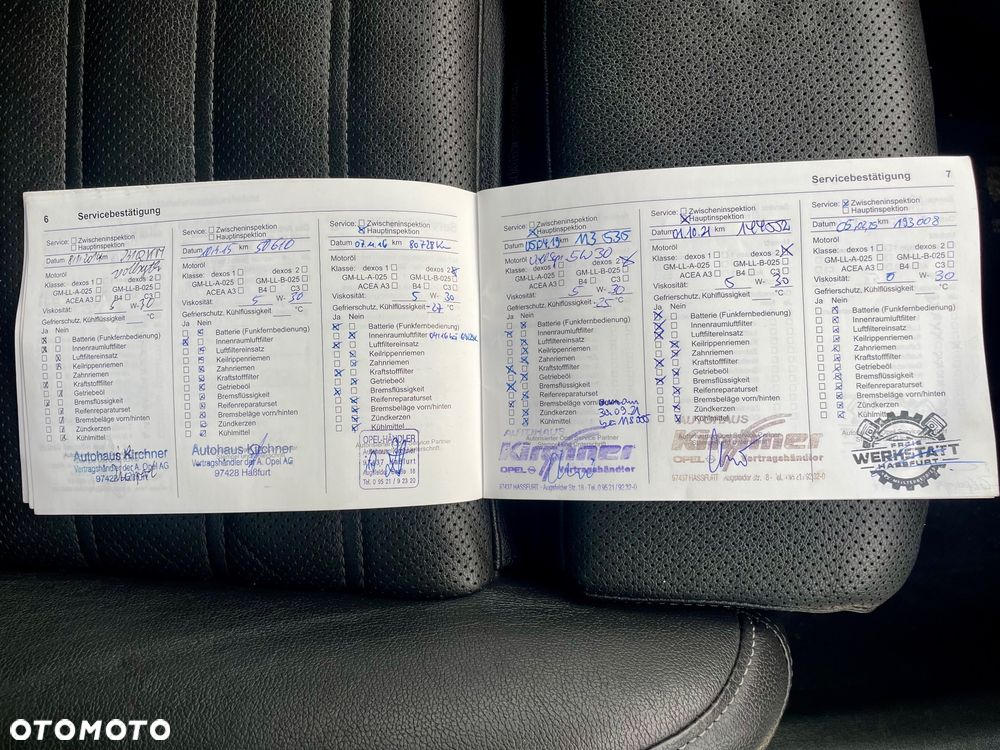 6 Servicebestätigung
Service: Zwischeninspektion
Hauptinspektion
Datum km
Motoröl
Klasse: dexos 1 dexos 2
GM-LL-A-025 GM-LL-B-025
ACEA A3 B4 C3
Viskosität: 5 W- 30
Gefrierschutz, Kühlflüssigkeit °C
Ja Nein
Batterie (Funkfernbedienung)
Innenraumluftfilter
Luftfiltereinsatz
Keilrippenriemen
Zahnriemen
Kraftstofffilter
Getriebeöl
Bremsflüssigkeit
Reifenreparaturset
Bremsbeläge vorn/hinten
Zündkerzen
Kühlmittel
Autohaus Kirchner
Vertragshändler der A. Opel AG
97428 Haßfurt
Service: Zwischeninspektion
Hauptinspektion
Datum km 50610
Motoröl
Klasse: dexos 1 dexos 2
GM-LL-A-025 GM-LL-B-025
ACEA A3 B4 C3
Viskosität: 5 W- 30
Gefrierschutz, Kühlflüssigkeit °C
Ja Nein
Batterie (Funkfernbedienung)
Innenraumluftfilter
Luftfiltereinsatz
Keilrippenriemen
Zahnriemen
Kraftstofffilter
Getriebeöl
Bremsflüssigkeit
Reifenreparaturset
Bremsbeläge vorn/hinten
Zündkerzen
Kühlmittel
Autohaus Kirchner
Vertragshändler der A. Opel AG
97428 Haßfurt
Service: Zwischeninspektion
Hauptinspektion
Datum 07.11.16 km 80728 km
Motoröl
Klasse: dexos 1 dexos 2
GM-LL-A-025 GM-LL-B-025
ACEA A3 B4 C3
Viskosität: 5 W- 30
Gefrierschutz, Kühlflüssigkeit -27 °C
Ja Nein
Batterie (Funkfernbedienung)
Innenraumluftfilter
Luftfiltereinsatz
Keilrippenriemen
Zahnriemen
Kraftstofffilter
Getriebeöl
Bremsflüssigkeit
Reifenreparaturset
Bremsbeläge vorn/hinten
Zündkerzen
Kühlmittel
OPEL-HÄNDLER
AUTOHAUS
97437
Augsfelder 18
Tel. 0 95 21 / 9 23 20
Servicebestätigung 7
Service: Zwischeninspektion
Hauptinspektion
Datum 05.04.19 km 113 535
Motoröl 5W30
Klasse: dexos 1 dexos 2
GM-LL-A-025 GM-LL-B-025
ACEA A3 B4 C3
Viskosität: 5 W- 30
Gefrierschutz, Kühlflüssigkeit -25 °C
Ja Nein
Batterie (Funkfernbedienung)
Innenraumluftfilter
Luftfiltereinsatz
Keilrippenriemen
Zahnriemen
Kraftstofffilter
Getriebeöl
Bremsflüssigkeit
Reifenreparaturset
Bremsbeläge vorn
Zündkerzen
Kühlmittel
AUTOHAUS
Kirchner
OPEL Vertragshändler
97437 HASSFURT - Augsfelder Str. 18 - Tel. 0 95 21 / 92 32-0
Service: Zwischeninspektion
Hauptinspektion
Datum 01.10.21 km 144552
Motoröl
Klasse: dexos 1 dexos 2
GM-LL-A-025 GM-LL-B-025
ACEA A3 B4 C3
Viskosität: 5 W- 30
Gefrierschutz, Kühlflüssigkeit °C
Ja Nein
Batterie (Funkfernbedienung)
Innenraumluftfilter
Luftfiltereinsatz
Keilrippenriemen
Zahnriemen
Kraftstofffilter
Getriebeöl
Bremsflüssigkeit
Reifenreparaturset
Bremsbeläge vorn/hinten
Zündkerzen
Kühlmittel
AUTOHAUS
Kirchner
OPEL Vertragshändler
97437 HASSFURT - Augsfelder Str. 18 - Tel. 0 95 21 / 92 32-0
Service: Zwischeninspektion
Hauptinspektion
Datum km 193 008
Motoröl
Klasse: dexos 1 dexos 2
GM-LL-A-025 GM-LL-B-025
ACEA A3 B4 C3
Viskosität: W- 30
Gefrierschutz, Kühlflüssigkeit °C
Ja Nein
Batterie (Funkfernbedienung)
Innenraumluftfilter
Luftfiltereinsatz
Keilrippenriemen
Zahnriemen
Kraftstofffilter
Getriebeöl
Bremsflüssigkeit
Reifenreparaturset
Bremsbeläge vorn/hinten
Zündkerzen
Kühlmittel
FREIE
WERKSTATT
HASSFURT
OTOMOTO